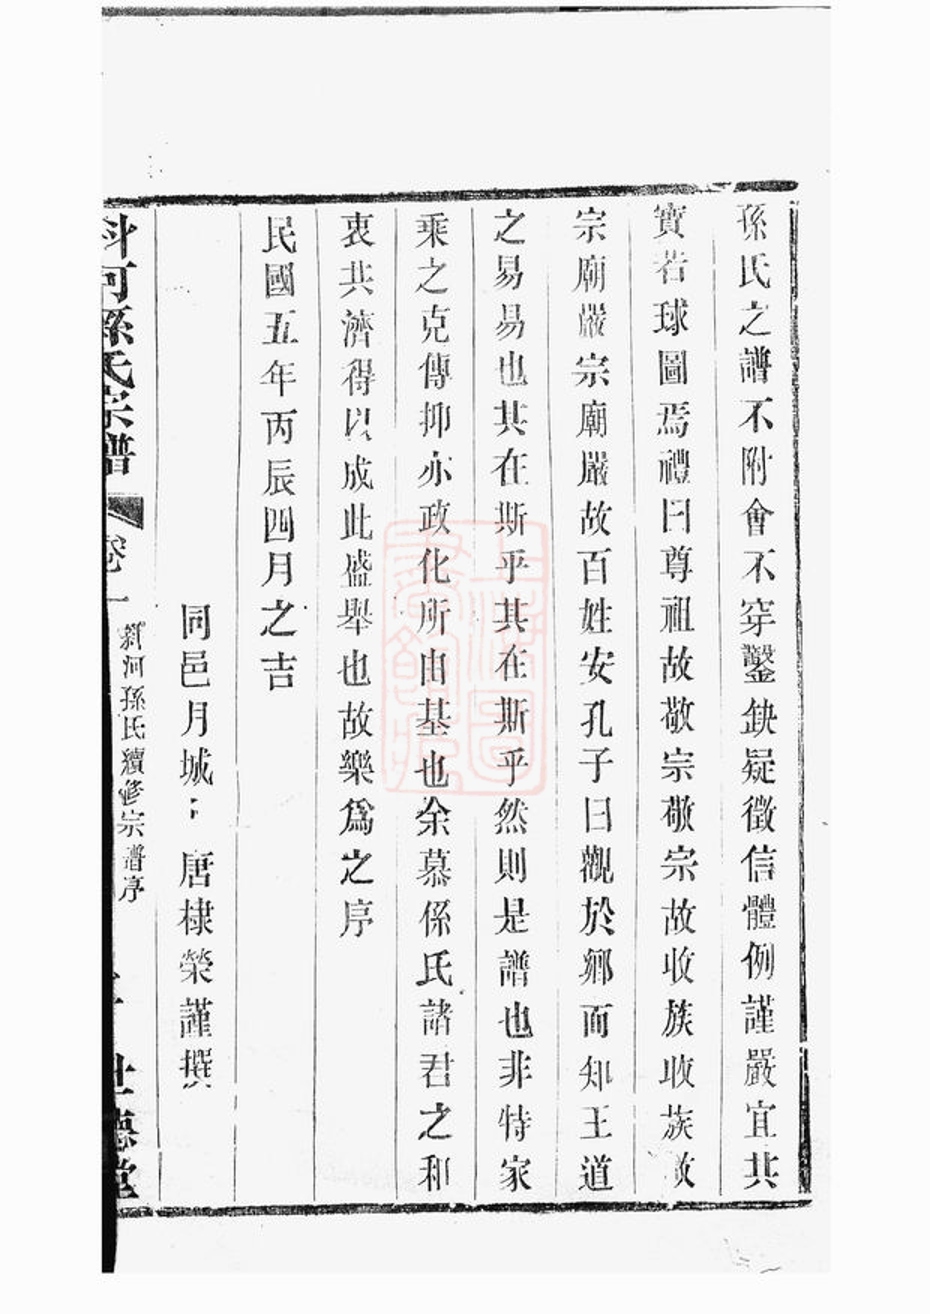 孫氏之譜不附會不穿鑿缺疑徵信體例謹嚴宜共
寶若球圖焉禮曰尊祖故敬宗敬宗故收族收族故
宗廟嚴宗廟嚴故百姓安孔子曰觀於鄉而知王道
之易易也其在斯乎其在斯乎然則是譜也非特家
乘之克傳抑亦政化所由基也余慕係氏諸君之和
衷共濟得以成此盛舉也故樂爲之序
民國五年丙辰四月之吉
同邑月城 唐棣榮謹撰
河孫氏宗譜
卷一
河孫氏續修宗譜序
世德堂
上海圖書館藏